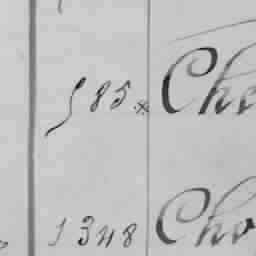 585 * Che
1348 Cho